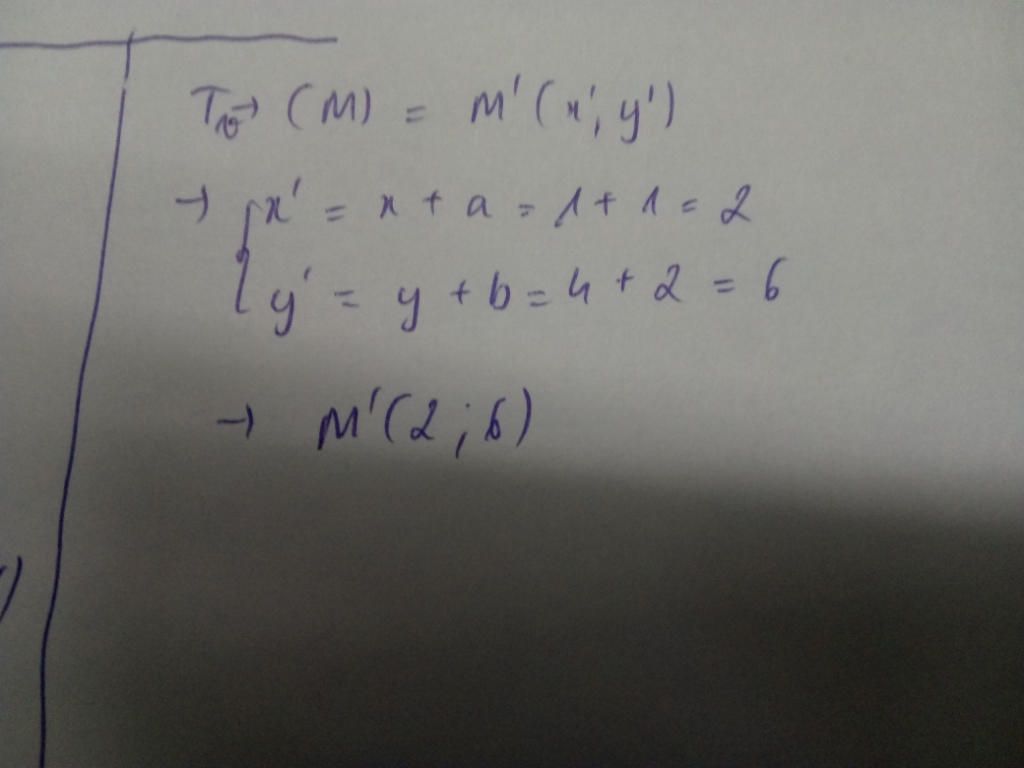 T_v→ (M) = M' (x'; y')
→ { x' = x + a = 1 + 1 = 2
y' = y + b = 4 + 2 = 6
→ M' (2 ; 6)
)